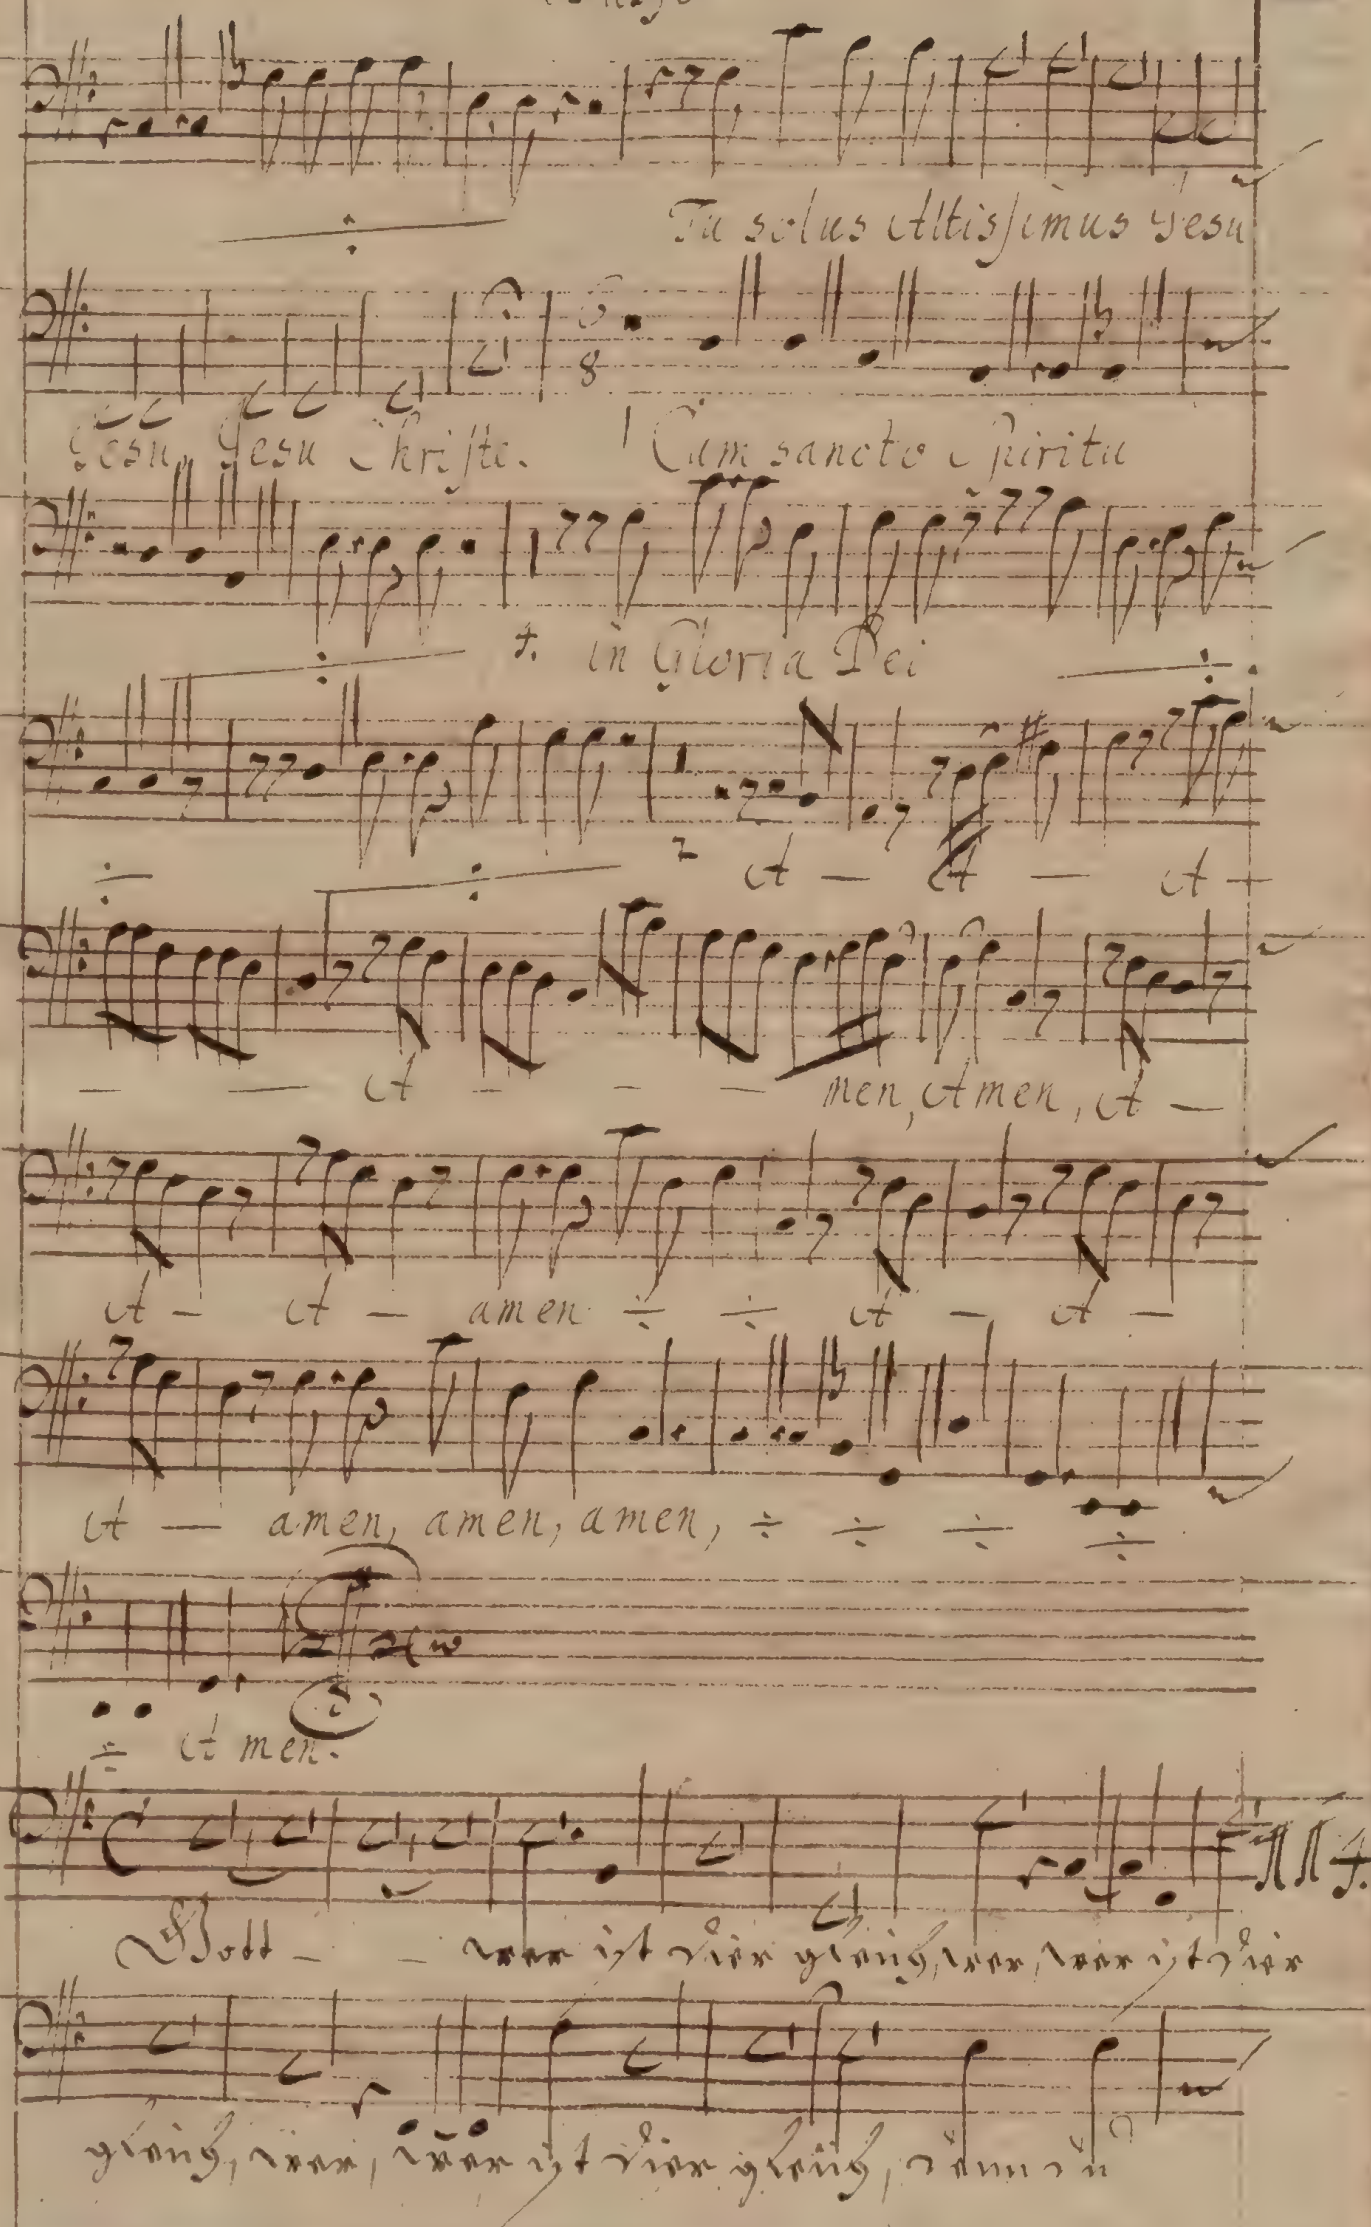 Tu solus Altissimus Jesu
6
8
Jesu, Jesu Christe. Cum sancto Spiritu
4. in Gloria Dei
2 A – A – A –
– – A – – – men, Amen, A –
A – A – amen ÷ ÷ A – A –
A – amen, amen, amen, ÷ ÷ ÷ ÷
÷ Amen.
114.
Gott – – wer ist dier gleich, wer, wer ist dier
gleich, wer, wer ist dier gleich, denn du